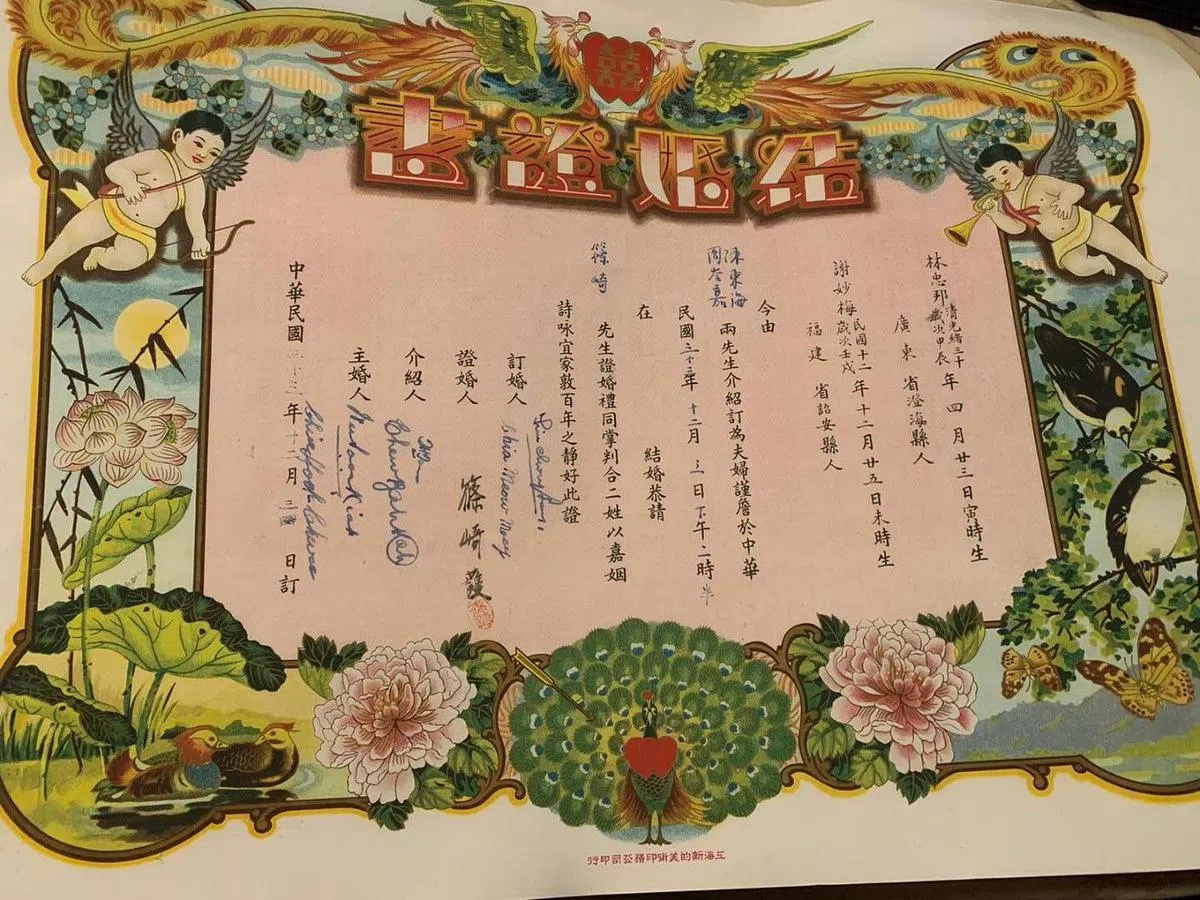 囍
結婚證書
林忠邦 清光緒三十年歲次甲辰四月廿三日寅時生
廣東省澄海縣人
謝妙梅 民國十二年歲次壬戌十二月廿五日未時生
福建省詔安縣人
今由
陳東海
周 嘉 兩先生介紹訂為夫婦謹詹於中華
民國三十三年十二月三日下午二時半
在 結婚恭請
篠崎 先生證婚禮同掌判合二姓以嘉姻
詩咏宜家敦百年之靜好此證
訂婚人
Chia Meow Mooy
證婚人 篠崎護
介紹人
Chew Gah
主婚人
中華民國三十三年十二月三日訂
上海新的美術印務公司印行